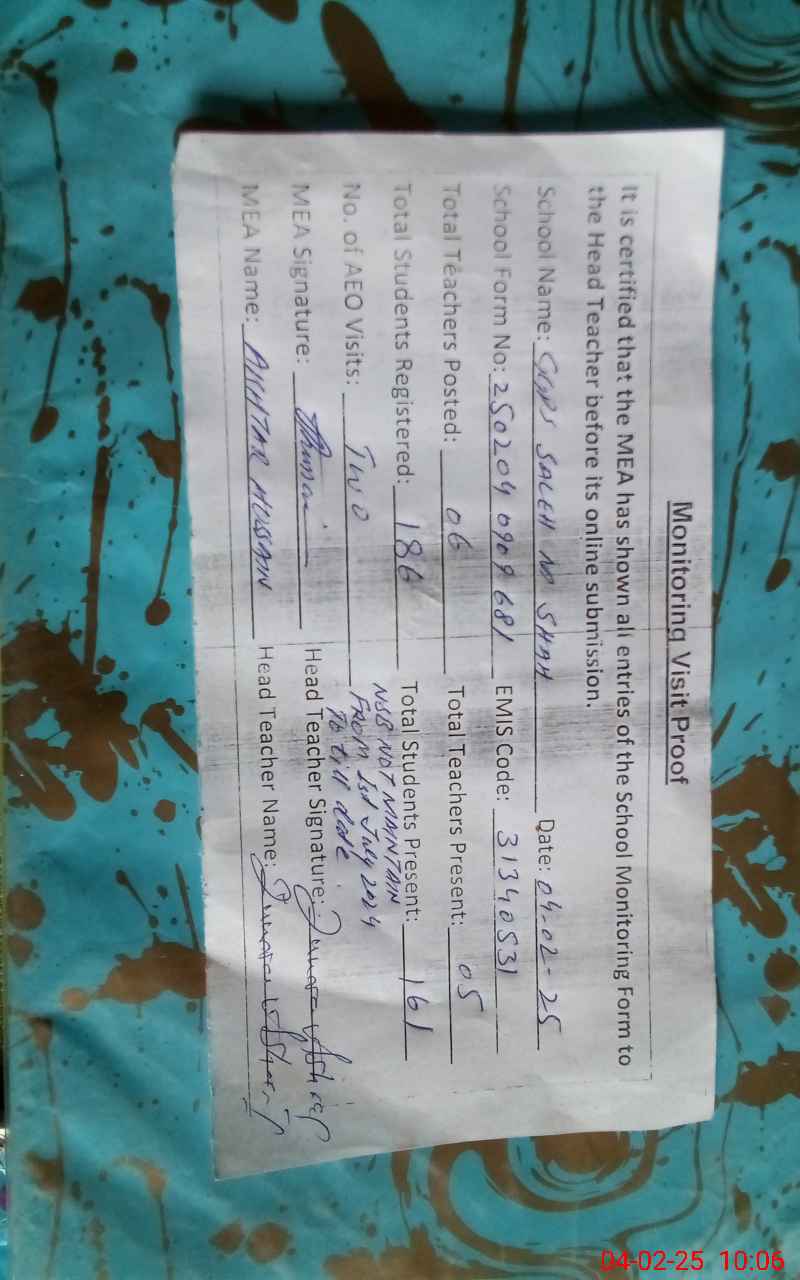 Monitoring Visit Proof
It is certified that the MEA has shown all entries of the School Monitoring Form to
the Head Teacher before its online submission.
School Name: SALEH M SHAH Date: 04-02-25
School Form No: 250204 0909 681 EMIS Code: 31340531
Total Teachers Posted: 06 Total Teachers Present: 05
Total Students Registered: 186 Total Students Present: 161
No. of AEO Visits: Two
NSB NOT MAINTAIN
FROM 1st July 2024
To till date
MEA Signature: Head Teacher Signature:
MEA Name: AKHTAR HUSSAIN Head Teacher Name:
04-02-25 10:06